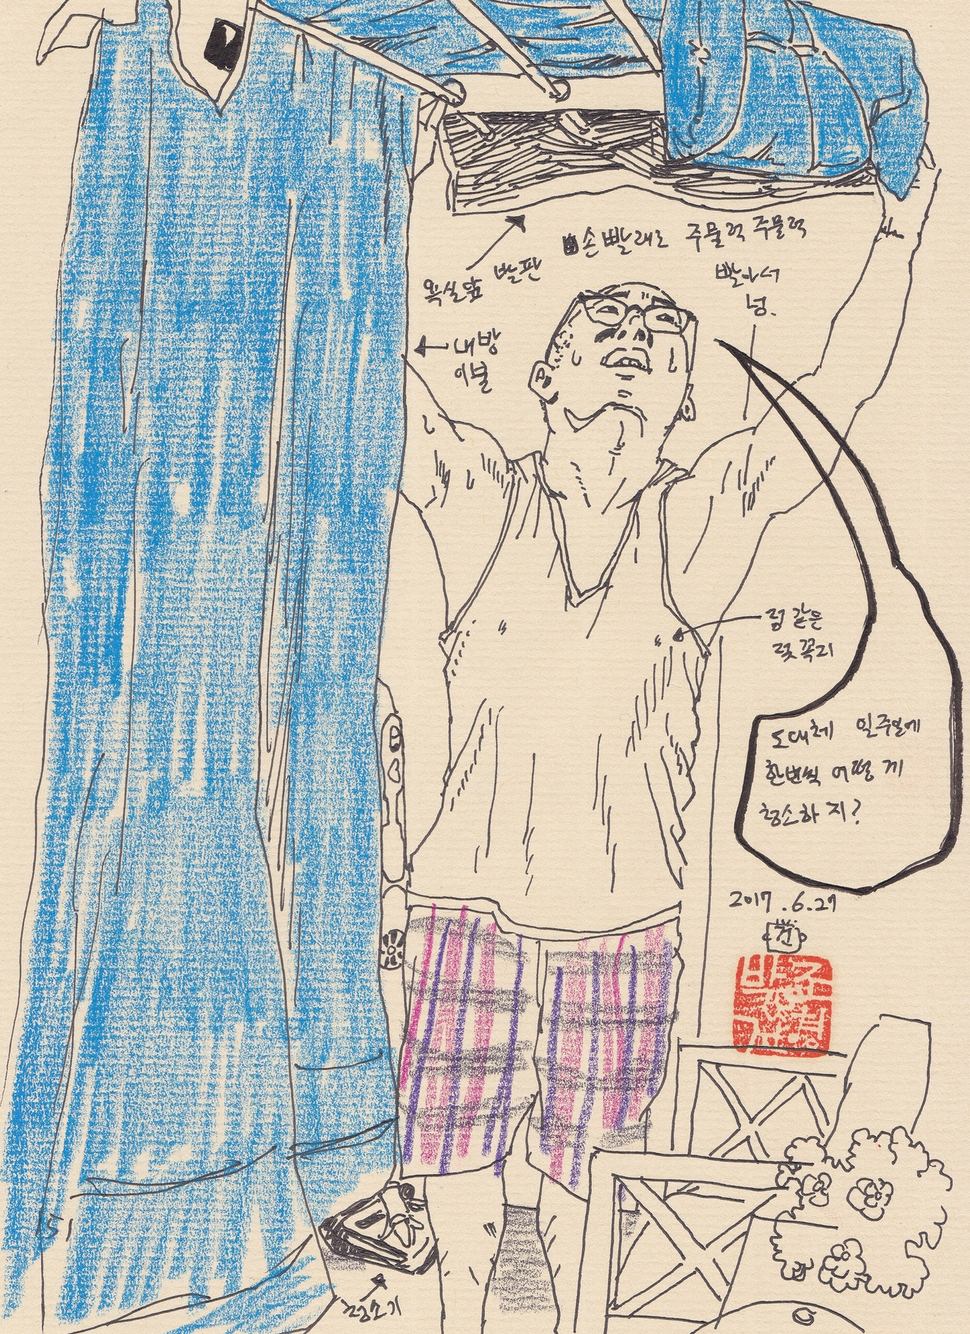 손빨래로 주물럭 주물럭
빨아서
넘.
욕실앞 발판
내방
이불
점 같은
젖꼭지
도대체 일주일에
한번씩 어떻게
청소하지?
2017.6.27
청소기